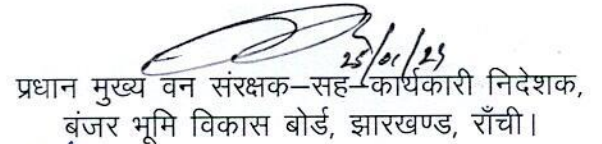 25/01/23
प्रधान मुख्य वन संरक्षक–सह–कार्यकारी निदेशक,
बंजर भूमि विकास बोर्ड, झारखण्ड, राँची।